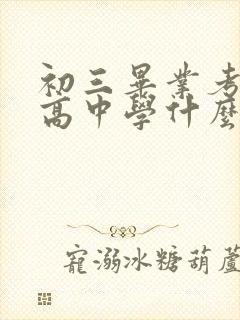 初三畢業考
高中學什麼
寵溺冰糖葫蘆